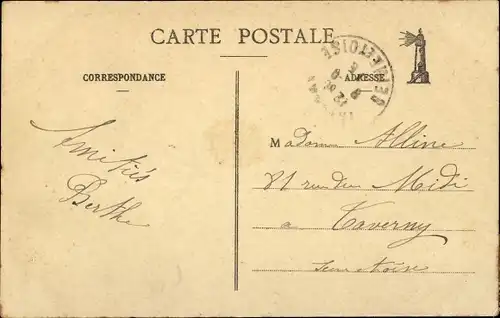 CARTE POSTALE
CORRESPONDANCE
ADRESSE
SEINE-ET-OISE
12
Amitiés
Berthe
Madame Alline
81 rue du Midi
a Taverny
Seine et Oise